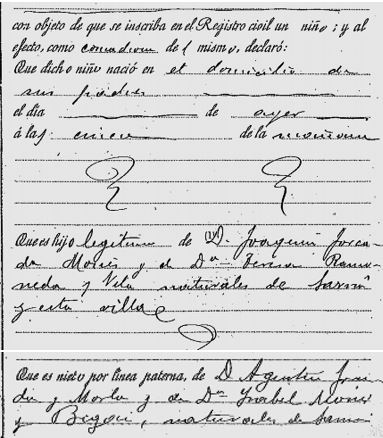 con objeto de que se inscriba en el Registro civil un niño; y al
efecto, como comadrona del mismo, declaró:
Que dicho niño nació en el domicilio de
sus padres
el día de ayer
á las cinco de la mañana
Que es hijo legítimo de D. Joaquín Forca-
da Monés y de Dª Teresa Ramo-
neda y Vila naturales de Sarriá
y esta villa
Que es nieto por línea paterna, de D. Agustín Forca-
da y Morla y de Dª Isabel Monés
y naturales de Sarriá